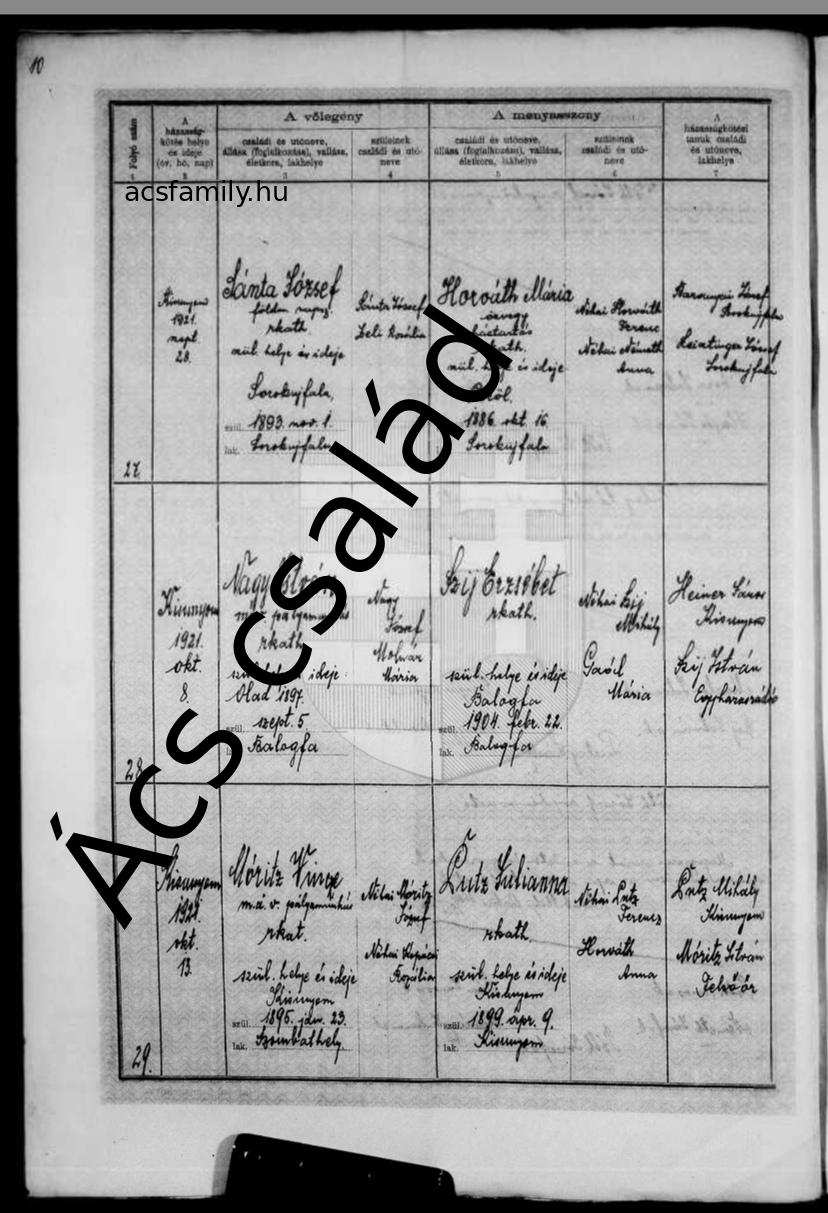 10
A vőlegény
A menyasszony
Folyó szám
A
házasság-
kötés helye
és ideje
(év, hó, nap)
családi és utóneve,
állása (foglalkozása), vallása,
életkora, lakhelye
szüleinek
családi és utó-
neve
családi és utóneve,
állása (foglalkozása), vallása,
életkora, lakhelye
szüleinek
családi és utó-
neve
A
házasságkötési
tanuk családi
és utóneve,
lakhelye
1
2
3
4
5
6
7
acsfamily.hu
27.
Kisunyom
1921.
szept.
28.
Sánta József
földm. napsz.
rkath.
szül. helye és ideje
Sorokujfalu,
szül. 1893. nov. 1.
lak. Sorokujfalu
Sánta József
Rozália
Horváth Mária
özvegy
háztartás
rkath.
szül. helye és ideje
szül. 1886. okt. 16.
lak. Sorokujfalu
Néhai Horváth
Ferenc
Néhai Németh
Anna
József
Sorokujfalu
József
Sorokujfalu
28.
Kisunyom
1921.
okt.
8.
Nagy István
rkath.
szül. helye és ideje
Olad 1897.
szül. szept. 5.
lak. Balogfa
Nagy
József
Molnár
Mária
Szij Erzsébet
rkath.
szül. helye és ideje
Balogfa
szül. 1904. febr. 22.
lak. Balogfa
Néhai Szij
Mihály
Gaál
Mária
Heiner János
Kisunyom
Szij István
Egyházasrádóc
29.
Kisunyom
1921.
okt.
13.
Móritz Vince
m.á.v. pályamunkás
rkat.
szül. helye és ideje
Kisunyom
szül. 1895. jan. 23.
lak. Szombathely
Néhai Móritz
József
Néhai Kopácsi
Rozália
Lutz Julianna
rkath.
szül. helye és ideje
Kisunyom
szül. 1899. ápr. 9.
lak. Kisunyom
Néhai Lutz
Ferencz
Horváth
Anna
Lutz Mihály
Kisunyom
Móritz István
Felsőőr
Ács család